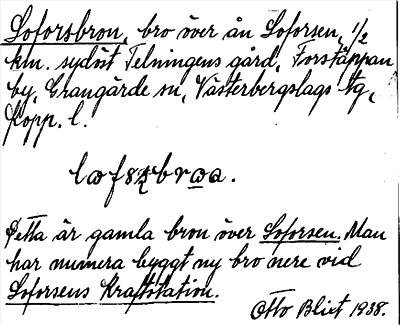 Soforsbron, bro över ån Soforsen, 1/2
km. sydöst Telningens gård, Forstäppan
by, Grangärde sn, Västerbergslags tg,
Kopp. l.
Detta är gamla bron över Soforsen. Man
har numera byggt ny bro nere vid
Soforsens Kraftstation.
Otto Blixt 1938.